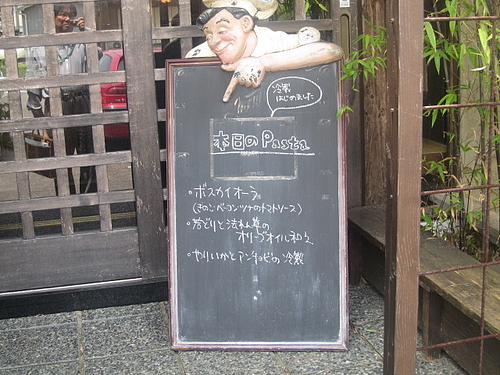 冷製
はじめました
本日のPasta
・ボスカイオーラ
(きのこ・ベーコン・ツナのトマトソース)
・若どりと法れん草の
オリーブオイルソース
・やりいかとアンチョビの冷製